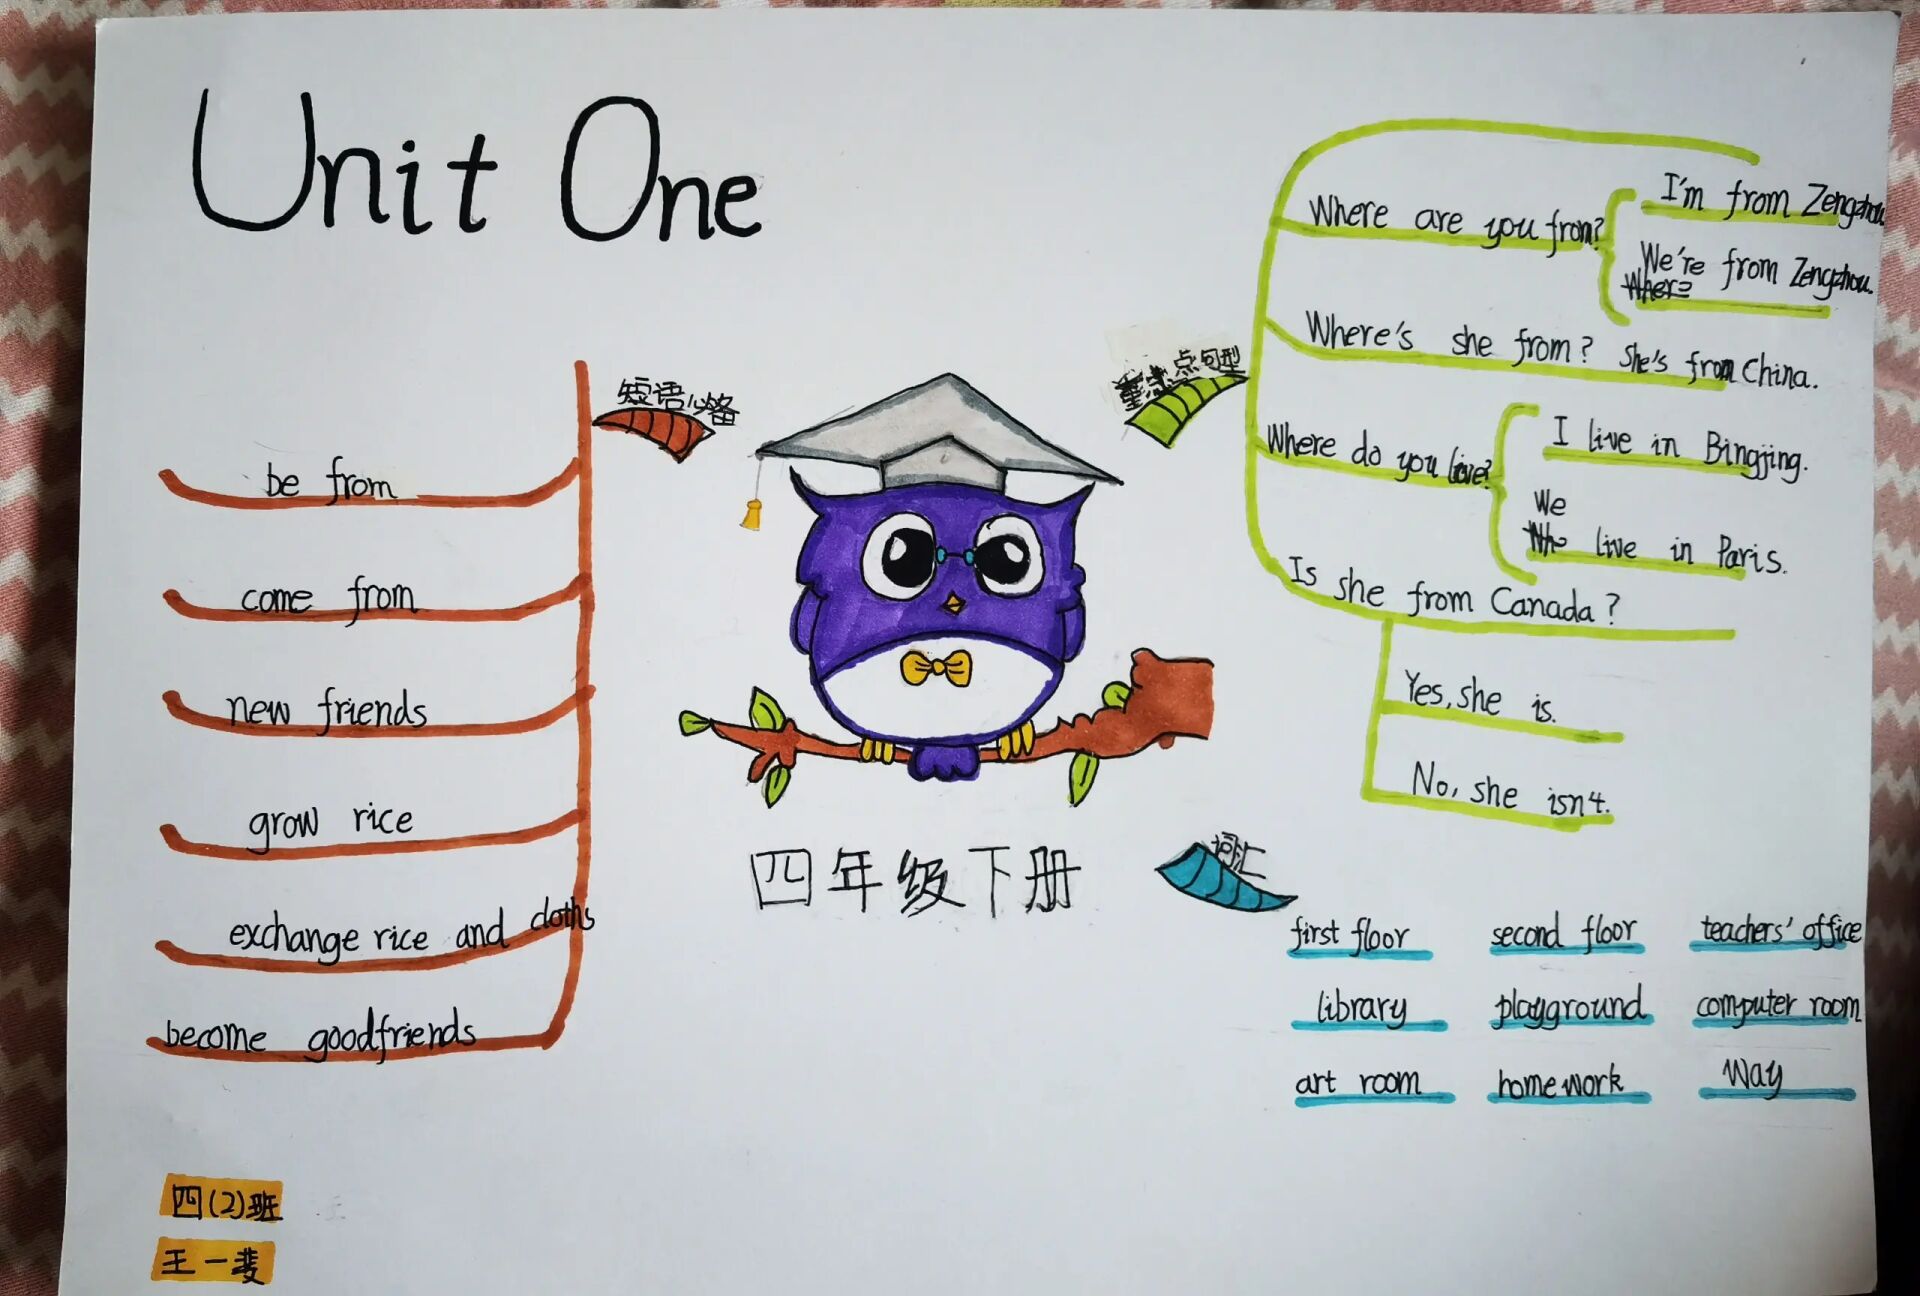 Unit One
短语必备
be from
come from
new friends
grow rice
exchange rice and cloths
become goodfriends
重点句型
Where are you from?
I'm from Zengzhou.
We're from Zengzhou.
Where's she from? She's from China.
Where do you live?
I live in Bingjing.
We live in Paris.
Is she from Canada?
Yes, she is.
No, she isn't.
四年级下册
词汇
first floor second floor teachers' office
library playground computer room
art room homework Way
四(2)班
王一斐